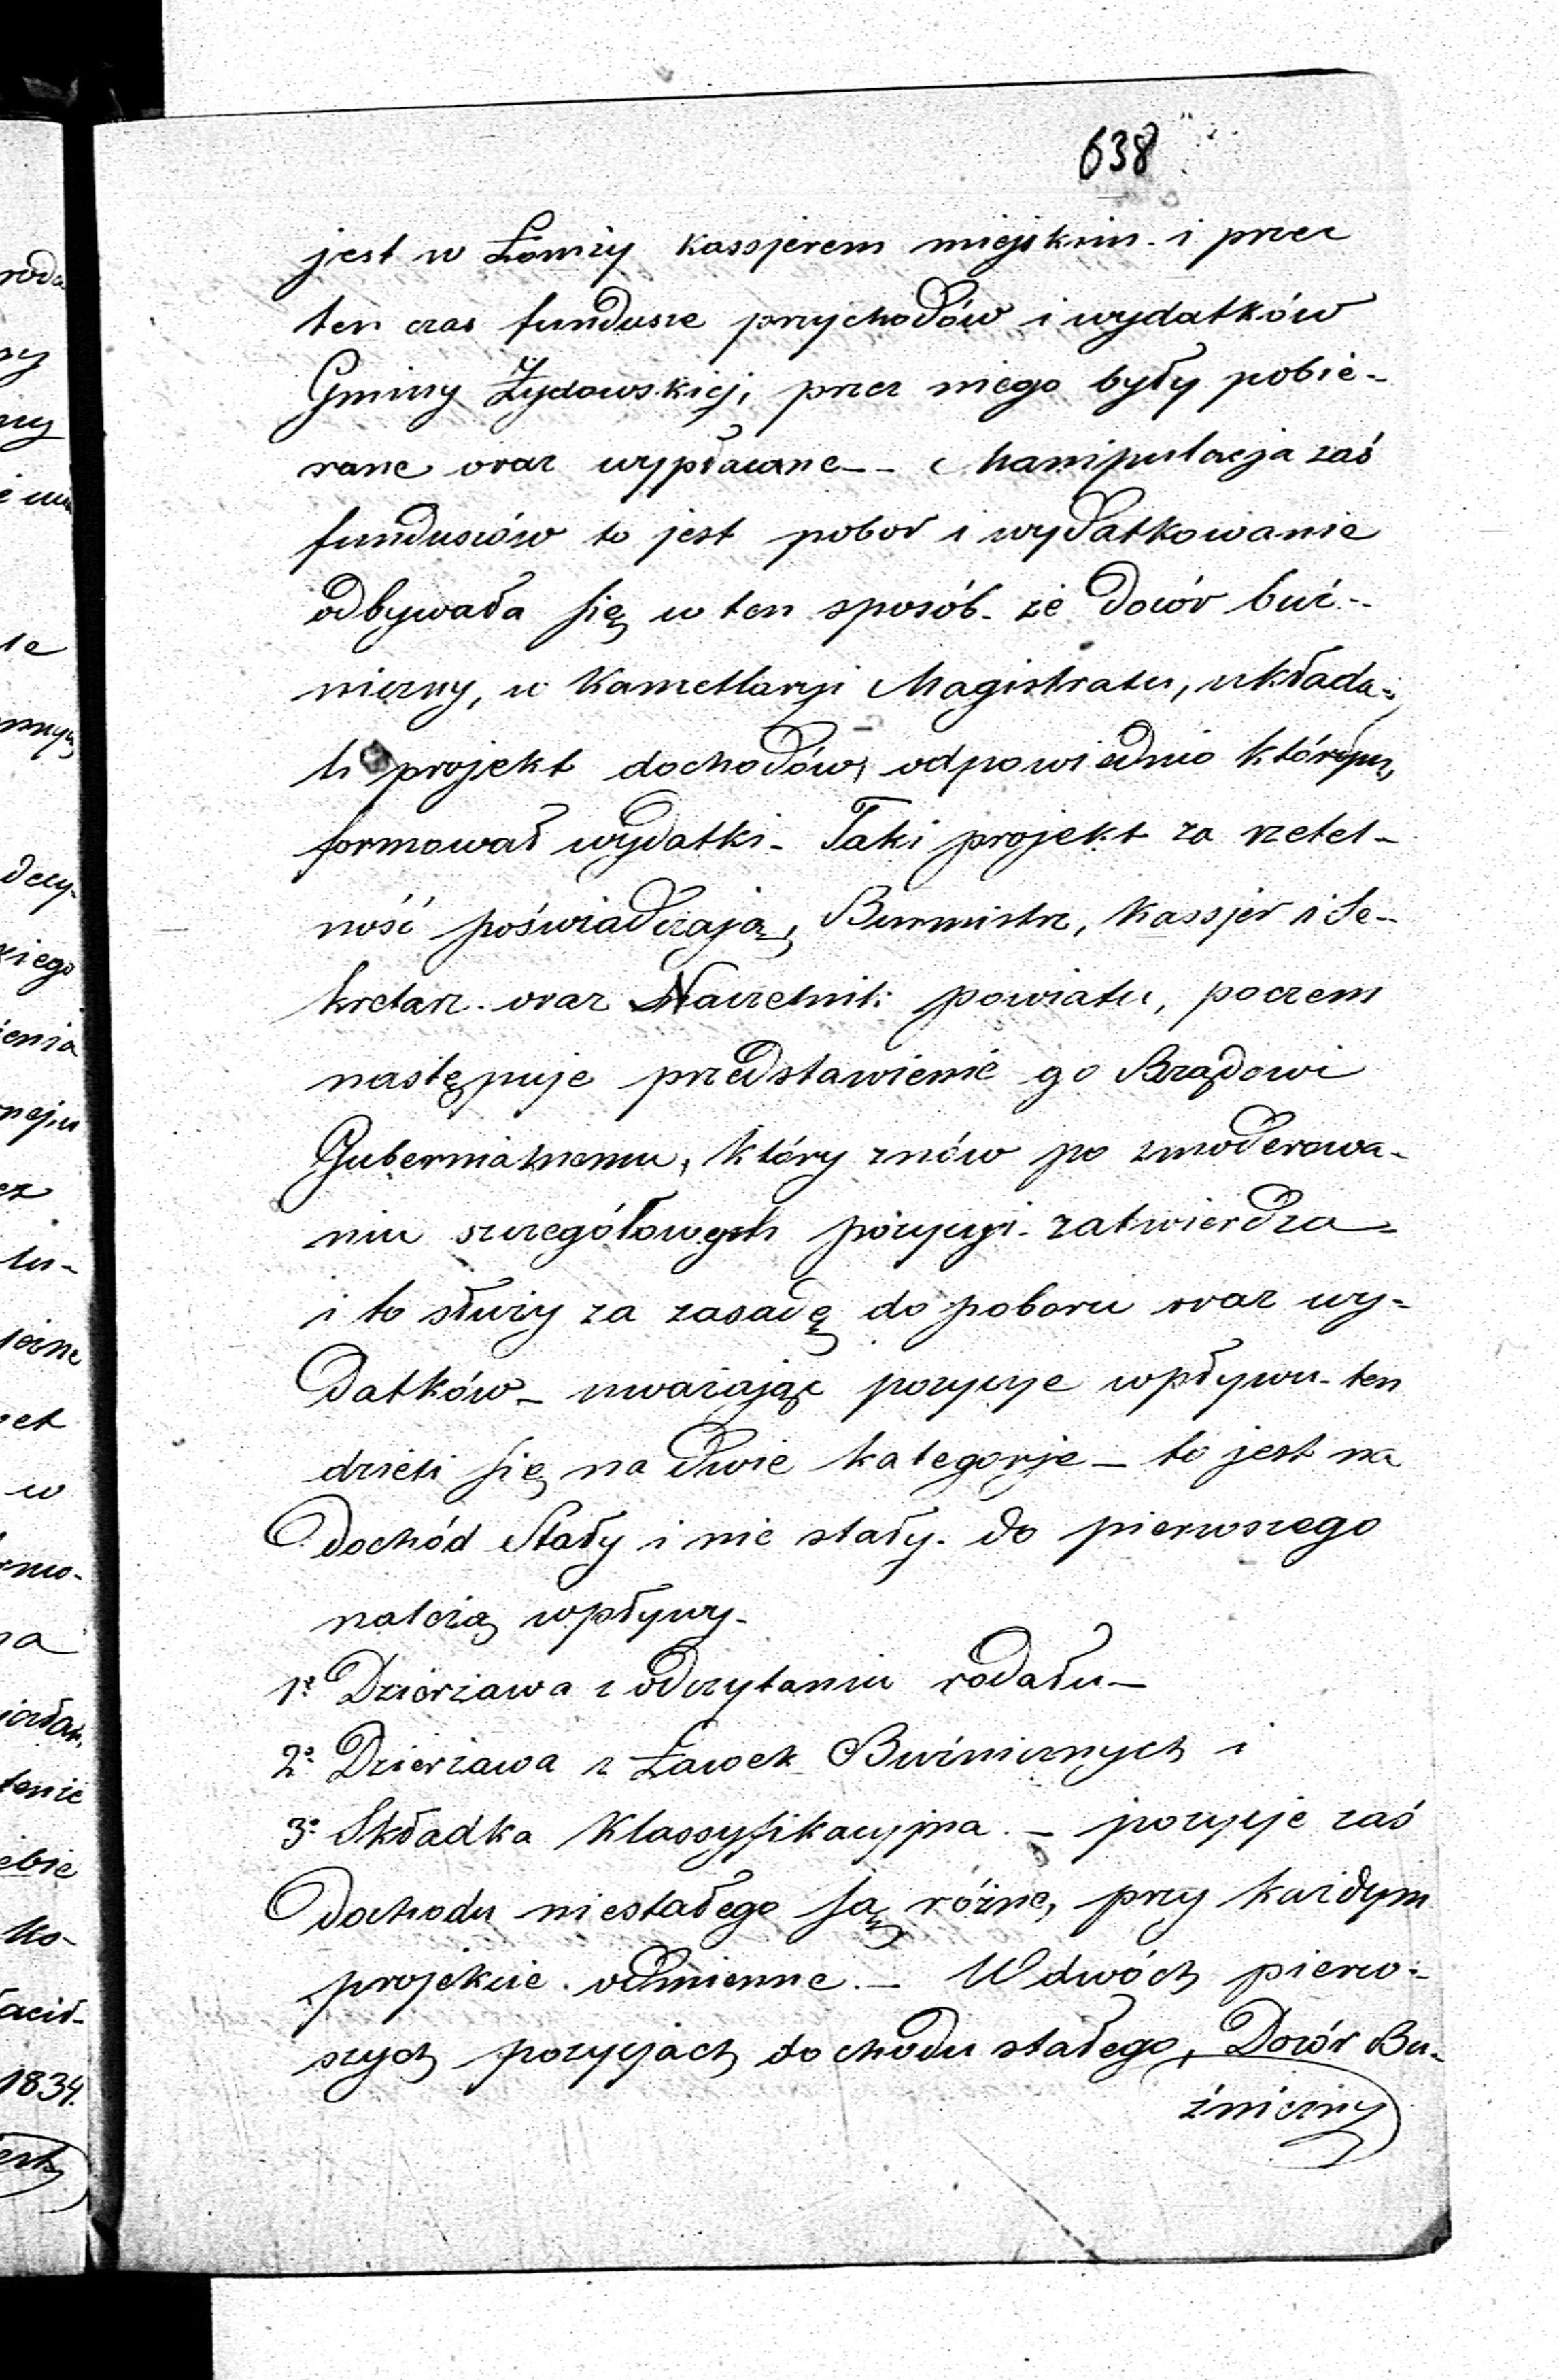 638
jest w Łomży kassjerem miejskim i przez
ten czas fundusze przychodów i wydatków
Gminy Żydowskiej, przez niego były pobie-
rane oraz wypłacane -- Manipulacja zaś
funduszów to jest pobor i wydatkowanie
odbywała się w ten sposób - że dozór buż-
niczny, w Kancellaryi Magistratu, układa-
ł projekt dochodów, odpowiednio którym,
formował wydatki - Taki projekt za rzetel-
ność poświadczają, Burmistrz, Kassjer i Se-
kretarz oraz Naczelnik powiatu, poczem
następuje przedstawienie go Rządowi
Gubernialnemu, który znów po zmoderowa-
niu szczegółowych pozycyi - zatwierdza -
i to służy za zasadę do poboru oraz wy-
datków - uważając pozycje wpływu - ten
dzieli się na dwie kategorje - to jest na
dochód Stały i nie stały. do pierwszego
należą wpływy -
1º Dzierżawa z odczytaniu rodału -
2º Dzierżawa z Ławek Bużnicznych i
3º Składka Klassyfikacyjna. - pozycje zaś
dochodu niestałego są różne, przy każdym
projekcie odmienne. - W dwóch pierw-
szych pozycjach dochodu stałego, Dozór Bu-
źniczny
rod
ny
le
decy-
kiego
ienia
nej w
ez
tu-
w
na
tenie
ebie
ko-
łacił-
1834.